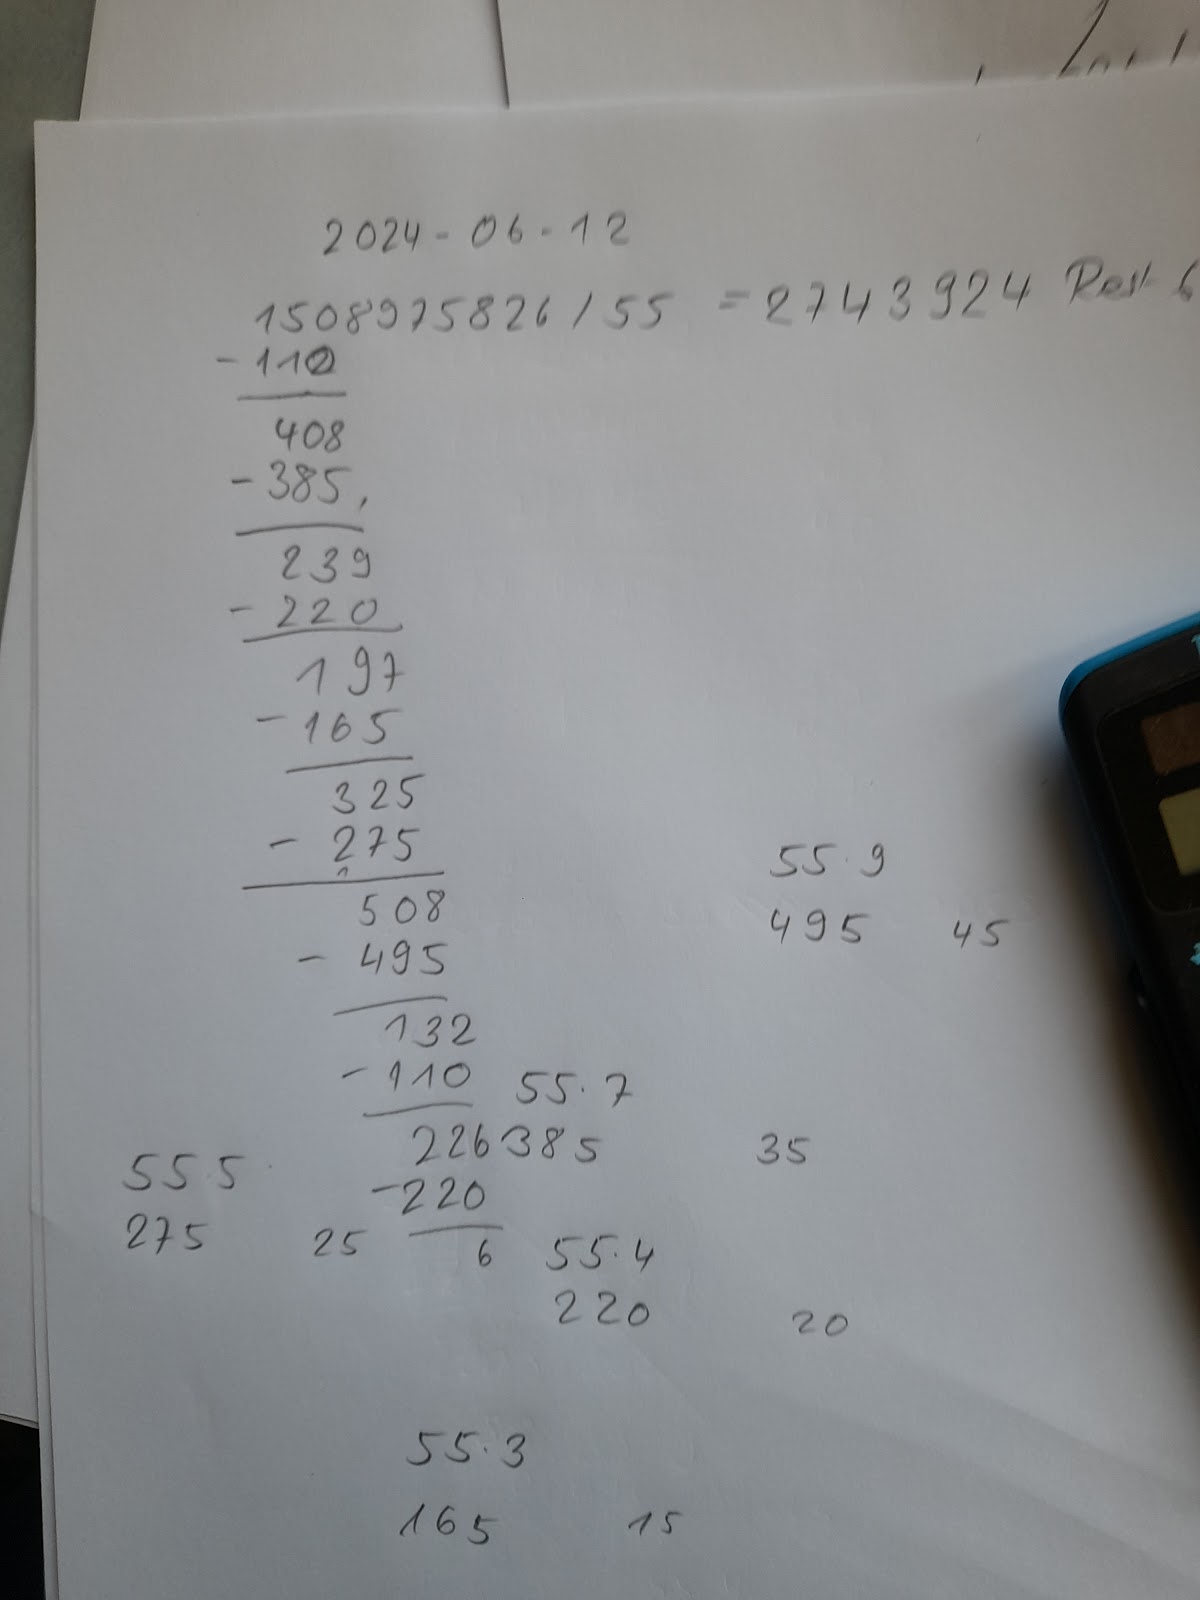 2024-06-12
1508975826/55 = 2743924 Rest 6
-110
408
-385
239
-220
197
-165
325
-275
508
-495
132
-110
226
-220
6
55·9
495 45
55·7
385 35
55·5
275 25
55·4
220 20
55·3
165 15